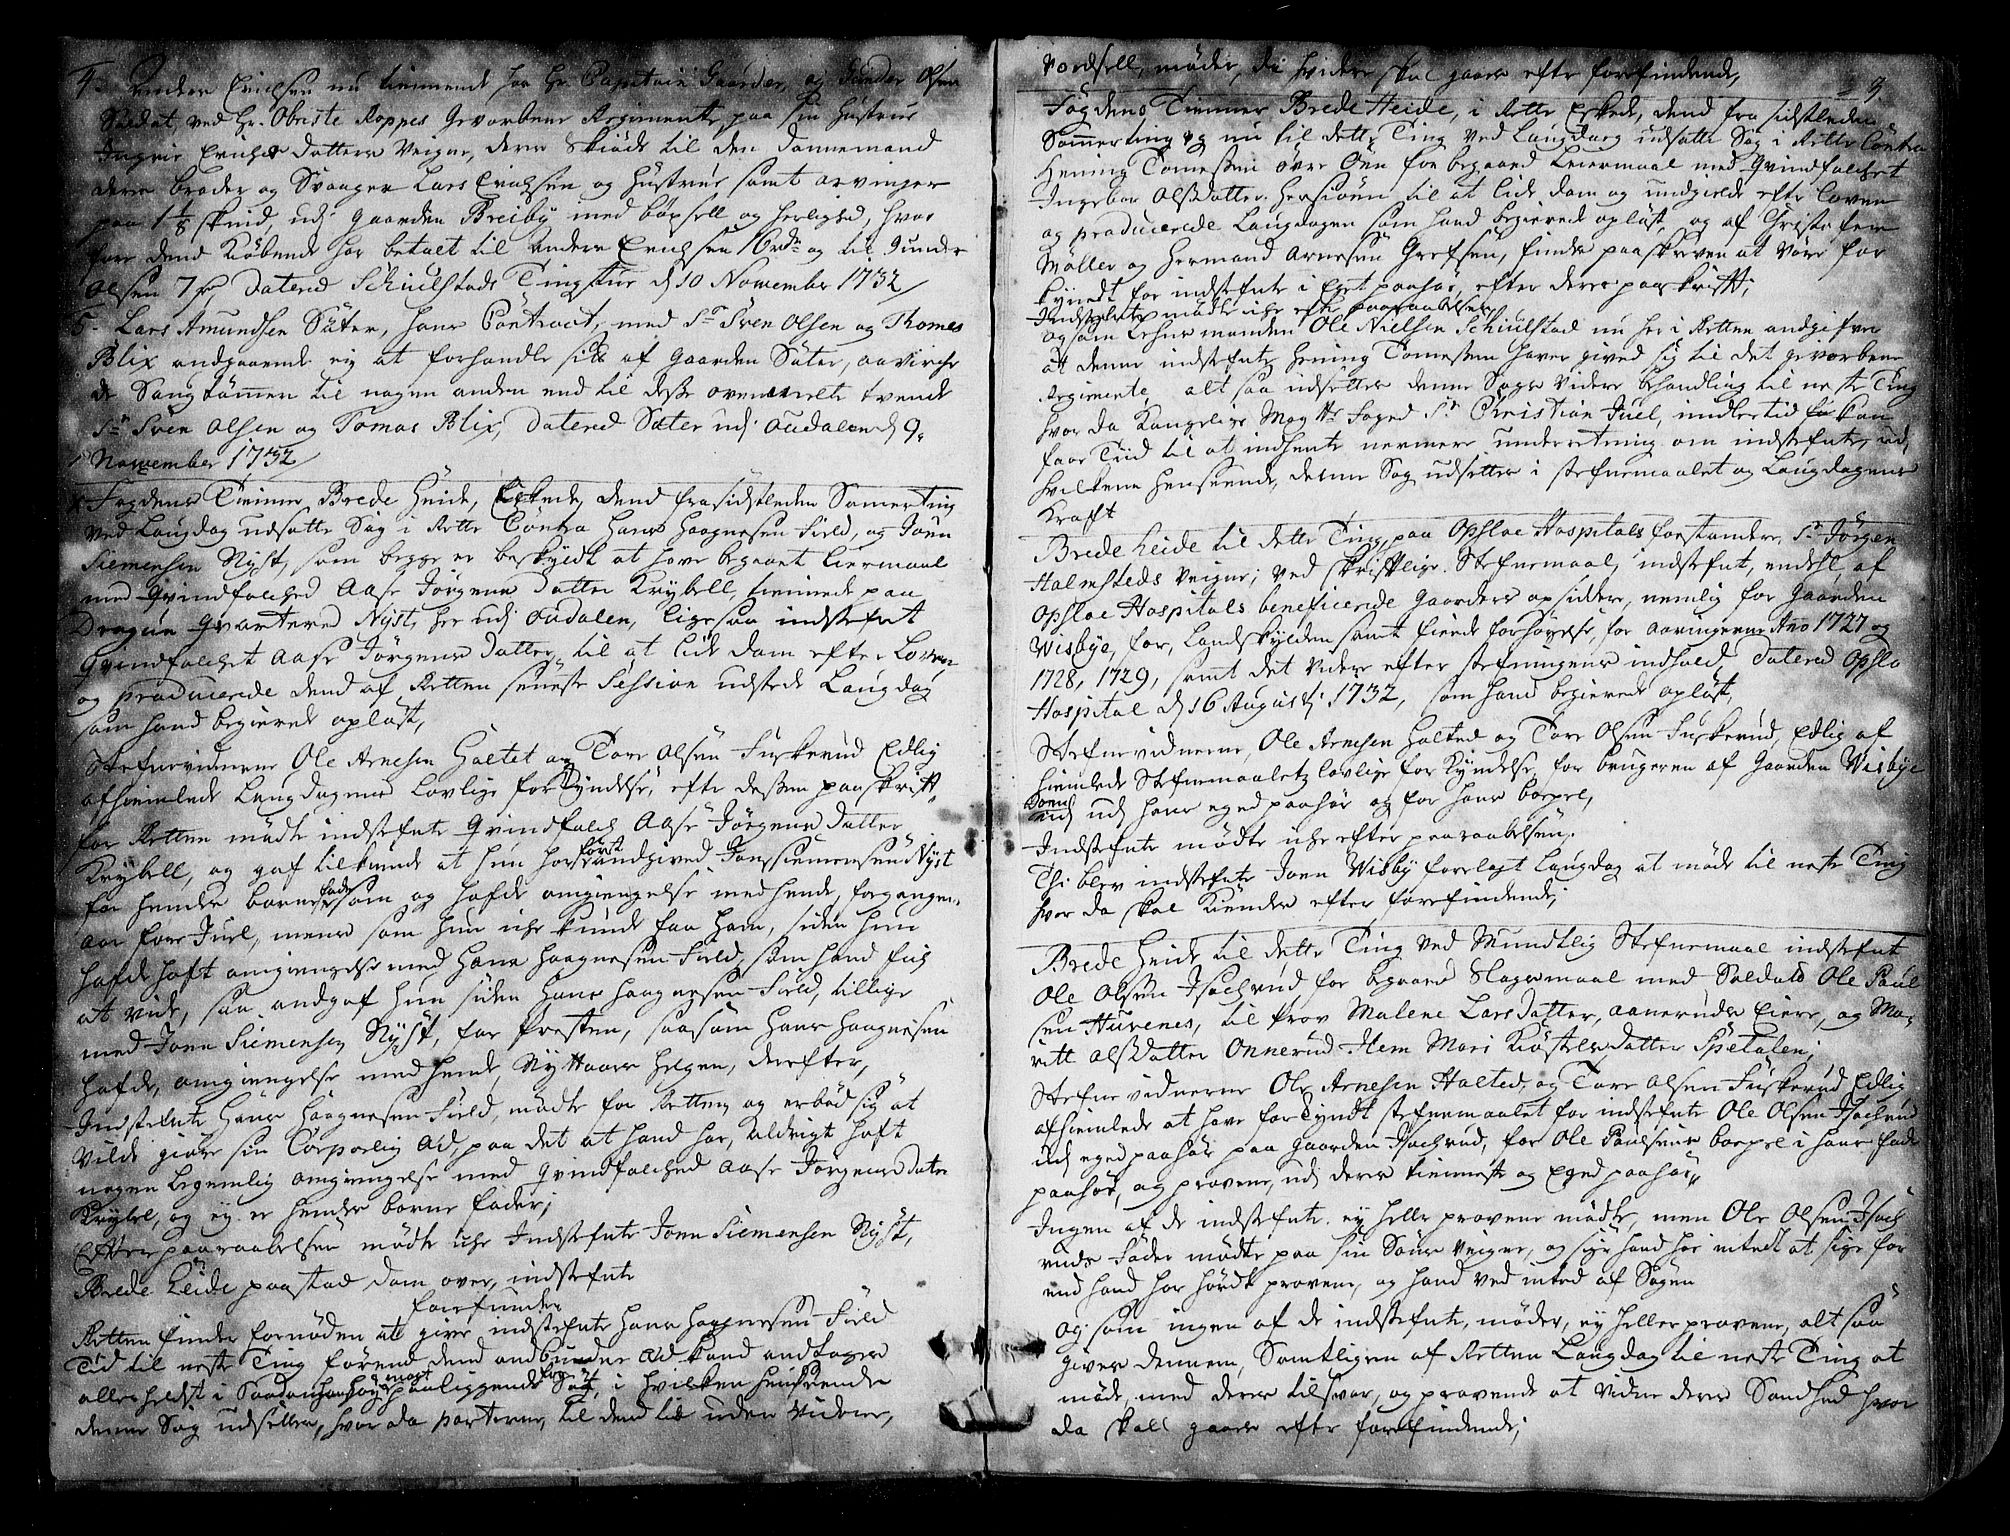 4. Anders Erichsen nu tienende hos Hr. Capitain Gaarder, og Gunder Olsen
Soldat, ved Hr. Obriste Roppes Gevorbene Regimente paa sin Hustrue
Ingrie Erichs Datters Veigne, deres Skiøde til den Dannemand
deres broder og Svaager Lars Erichsen og Hustrue samt arvinger
paa 1 1/8 skind, udj gaarden Breiby med bøxsell og herlighed, hvor
fore dend Kiøbende har betalt til Anders Erichsen 16 rdr og til Gunder
Olsen 7 rdr, Datered Schiulstads Tingstue d 10 November 1732/
5. Lars Amundsen Säter, hans Contract, med Sr Sven Olsen og Thomes
Blix andgaaende ej at forhandle sit af Gaarden Säter, aavirche
de Saugtømmer til nogen anden end til desse ovenmelte tvende
Sr Sven Olsen og Tomas Blix, Datered Säter udj Oudalen d 9.
November 1732/
Fogdens Tienner Brede Heide, Eskede, dend fra sidstleden Somerting
ved Laugdag udsatte Sag i Rette Contra Hans Haagnesen Field, og Joen
Siemensen Nyst, som begge er beskyldt at have begaaet Leiermaal
med Qvindfolched Aase Jørgens Datter Krybell, tienende paa
Dragun Qvarteret Nyst, her udj Oudalen, ligesaa indstefnt
Qvindfolchet Aase Jørgens Datter, til at lide dom efter Loven,
og producerede dend af Retten seneste Session udstede Laugdag
som hand begierede opläst,
Stefnevidnerne Ole Arnesen Haltet og Tore Olsen Fuskerud Edlig
afhiemlede Laugdagens Lovlige forkyndelse, efter dessen paaskrift,
for Retten mødte indstefnte Qvindfolch Aase Jørgens Datter
Krybell, og gaf tilkiende at hun har først andgived Joen Siemensen Nyst
for hendes barnefader som og hafde omgiengelse med hende, forgangen
aar fore Juel, mens som hun iche kunde faa ham, siden hun
hafde haft omgiengelse med Hans Haagnesen Field, som hand fik
at vide, saa andgaf hun siden Hans Haagnesen Field, tillige
med Joen Siemensen Nyst, for Presten, saasom Hans Haagnesen
hafde, omgiengelse med hende, Nyt Aars helgen, derefter,
Indstefnte Hans Haagnesen Field, mødte for Retten og erbød sig at
vilde giøre sin Corporlig Æd, paa det at hand har, aldrigt haft
nogen legemlig omgiengelse med qvindfolched Aase Jørgens Dater
Krybel, og ey er hendes barns fader;
Efter paaraabelsen mødte iche Indstefnte Joen Siemensen Nyst,
Brede Heide paastod dom over, indstefnte
forefunden
Retten finder fornøden at give indstefnte Hans Haagnesen Field
Tid til neste Ting førend dend andbudne Æd kand andtages
allerhelst i Saadan høy magt paaliggende Sag, i hvilken henseende
denne Sag udsettes, hvor da parterne, til dend tid uden videre,
Vordsell, møder, da hvidere skal gaaes efter forefindende,
9.
Fogdens Tienner Brede Heide, i Rette Eskede, dend fra sidstleden
Sommerting og nu til dette Ting ved Laugdag udsatte Sag i Rette Contra
Hening Tomessen øvre Öen for begaaed Leiermaal med Qvindfolchet
Ingebor Olsdatter Hersiøen til at lide dom og undgielde efter Loven
og producerede Laugdagen som hand begierede opläst, og af Christofer
Møller og Hermand Arnesen Grefsen, findes paaskreven at väre for
kyndt for indstefnte i Eget paahør, efter deres paaskrift,
Indstefnte mødte iche efter paaraabelsen
og som Lehnsmanden Ole Nielsen Schiulstad nu her i Retten andgifver
at denne indstefnte Hening Tomessen haver gived sig til det gevorbene
Regimente, alt saa udsettes denne Sags videre behandling til neste Ting
hvor da Kongelige Mayts Foged Sr Christian Juel, imidlertid kan
faae Tiid til at indhente nermere underretning om indstefnte, udj
hvilken henseende, denne Sag udsettes i stefnemaalet og Laugdagens
Kraft
Brede Heide til dette Ting, paa Opsloe Hospitals forstander, Sr Jørgen
Halmsteds Veigne; ved skriftlige Stefnemaal, indstefnt, endehl af
Opsloe Hospitals beneficerede Gaarders opsiddere, nemlig for Gaarden
Wisbye, for, Landskylden samt fierde forhøyelse, for aaringerne Anno 1727 og
1728, 1729, samt det videre efter stefningens indhold, Datered Opslo
Hospital d 16 Augustj 1732, som hand begierede opläst,
Stefnevidnerne, Ole Arnesen Halted og Tore Olsen Fuskerud Edlig af
hiemlede Stefnemaaletz lovlige forkyndelse, for brugeren af Gaarden Wisbye
Joen udj hans eged paahør og for hans boepel,
Indstefnte mødte iche efter paaraabelsen.
Thi blev indstefnte Joen Wisby forelagt Laugdag at møde til neste Ting
hvor da skal kiendes efter forefindende;
Brede Heide til dette Ting ved Mundtlig Stefnemaal indstefnt
Ole Olsen Isachrud for begaaed Slagsmaal med Soldat Ole Poul
sen Hurenes, til prov Malene Lars Datter, aanerudz Eiere, og Ma,
ritt Olsdatter Onnerud Item Mari Kiøstelsdatter Spetalen;
Stefnevidnerne Ole Arnesen Halted, og Tore Olsen Fuskerud Edlig
afhiemlede at have forkyndt stefnemaalet for indstefnte Ole Olsen Isachrud
udj eged paahør paa Gaarden Isachrud, for Ole Poulsens boepel i hans faders
paahør, og provene, udj deres tienneste og Eged paahør,
Ingen af de indstefnte ey heller provene mødte, men Ole Olsen Isach
ruds Fader mødte paa sin Søns Veigne, og siger hand har intedt at sige før
end hand har hørdt provene, og hand ved inted af Sagen
Og som ingen af de indstefnte, møder, ey heller provene, alt saa
gives dennem, Samtligen af Retten Laugdag til neste Ting at
møde med deres tilsvar, og provende at vidne deres Sandhed hvor
da skall gaaes efter forefindende;